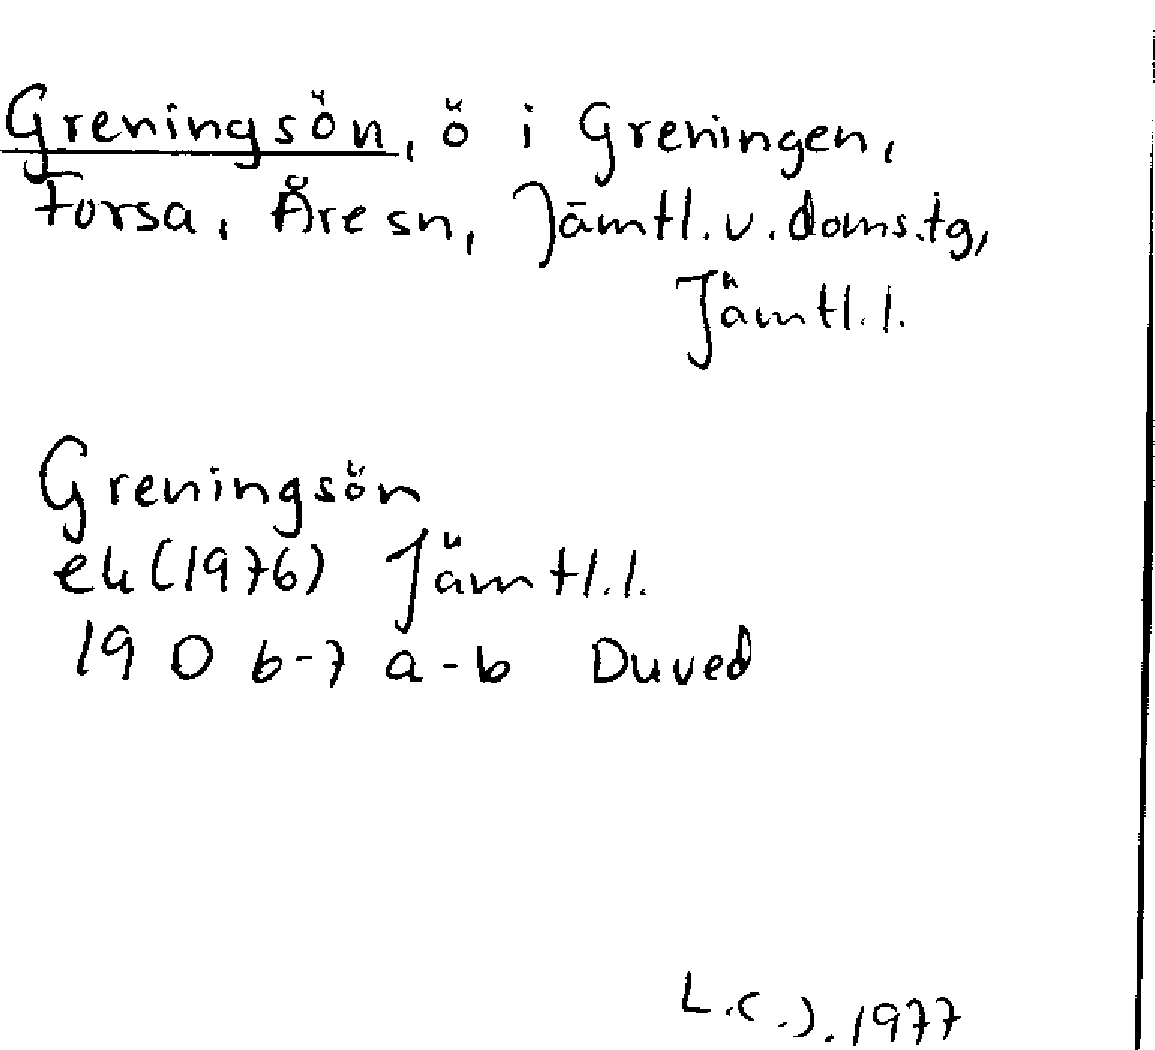 Greningsön, ö i Greningen,
Forsa, Åre sn, Jämtl. v. doms.tg,
Jämtl. l.
Greningsön
ek (1976) Jämtl. l.
19 D 6-7 a-b Duved
L.C.J. 1977